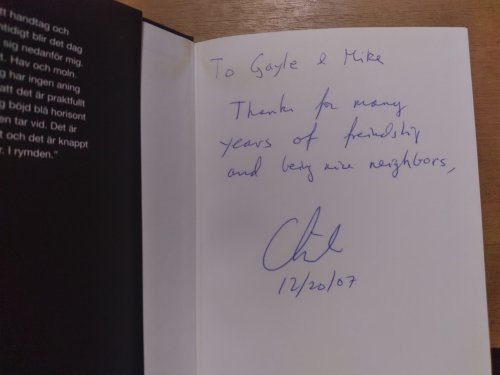 tt handtag och
ntidigt blir det dag
sig nedanför mig.
t. Hav och moln.
g har ingen aning
att det är praktfullt
g böjd blå horisont
en tar vid. Det är
t och det är knappt
r. I rymden."
To Gayle & Mike
Thanks for many
years of freindship
and being nice neighbors,
12/20/07